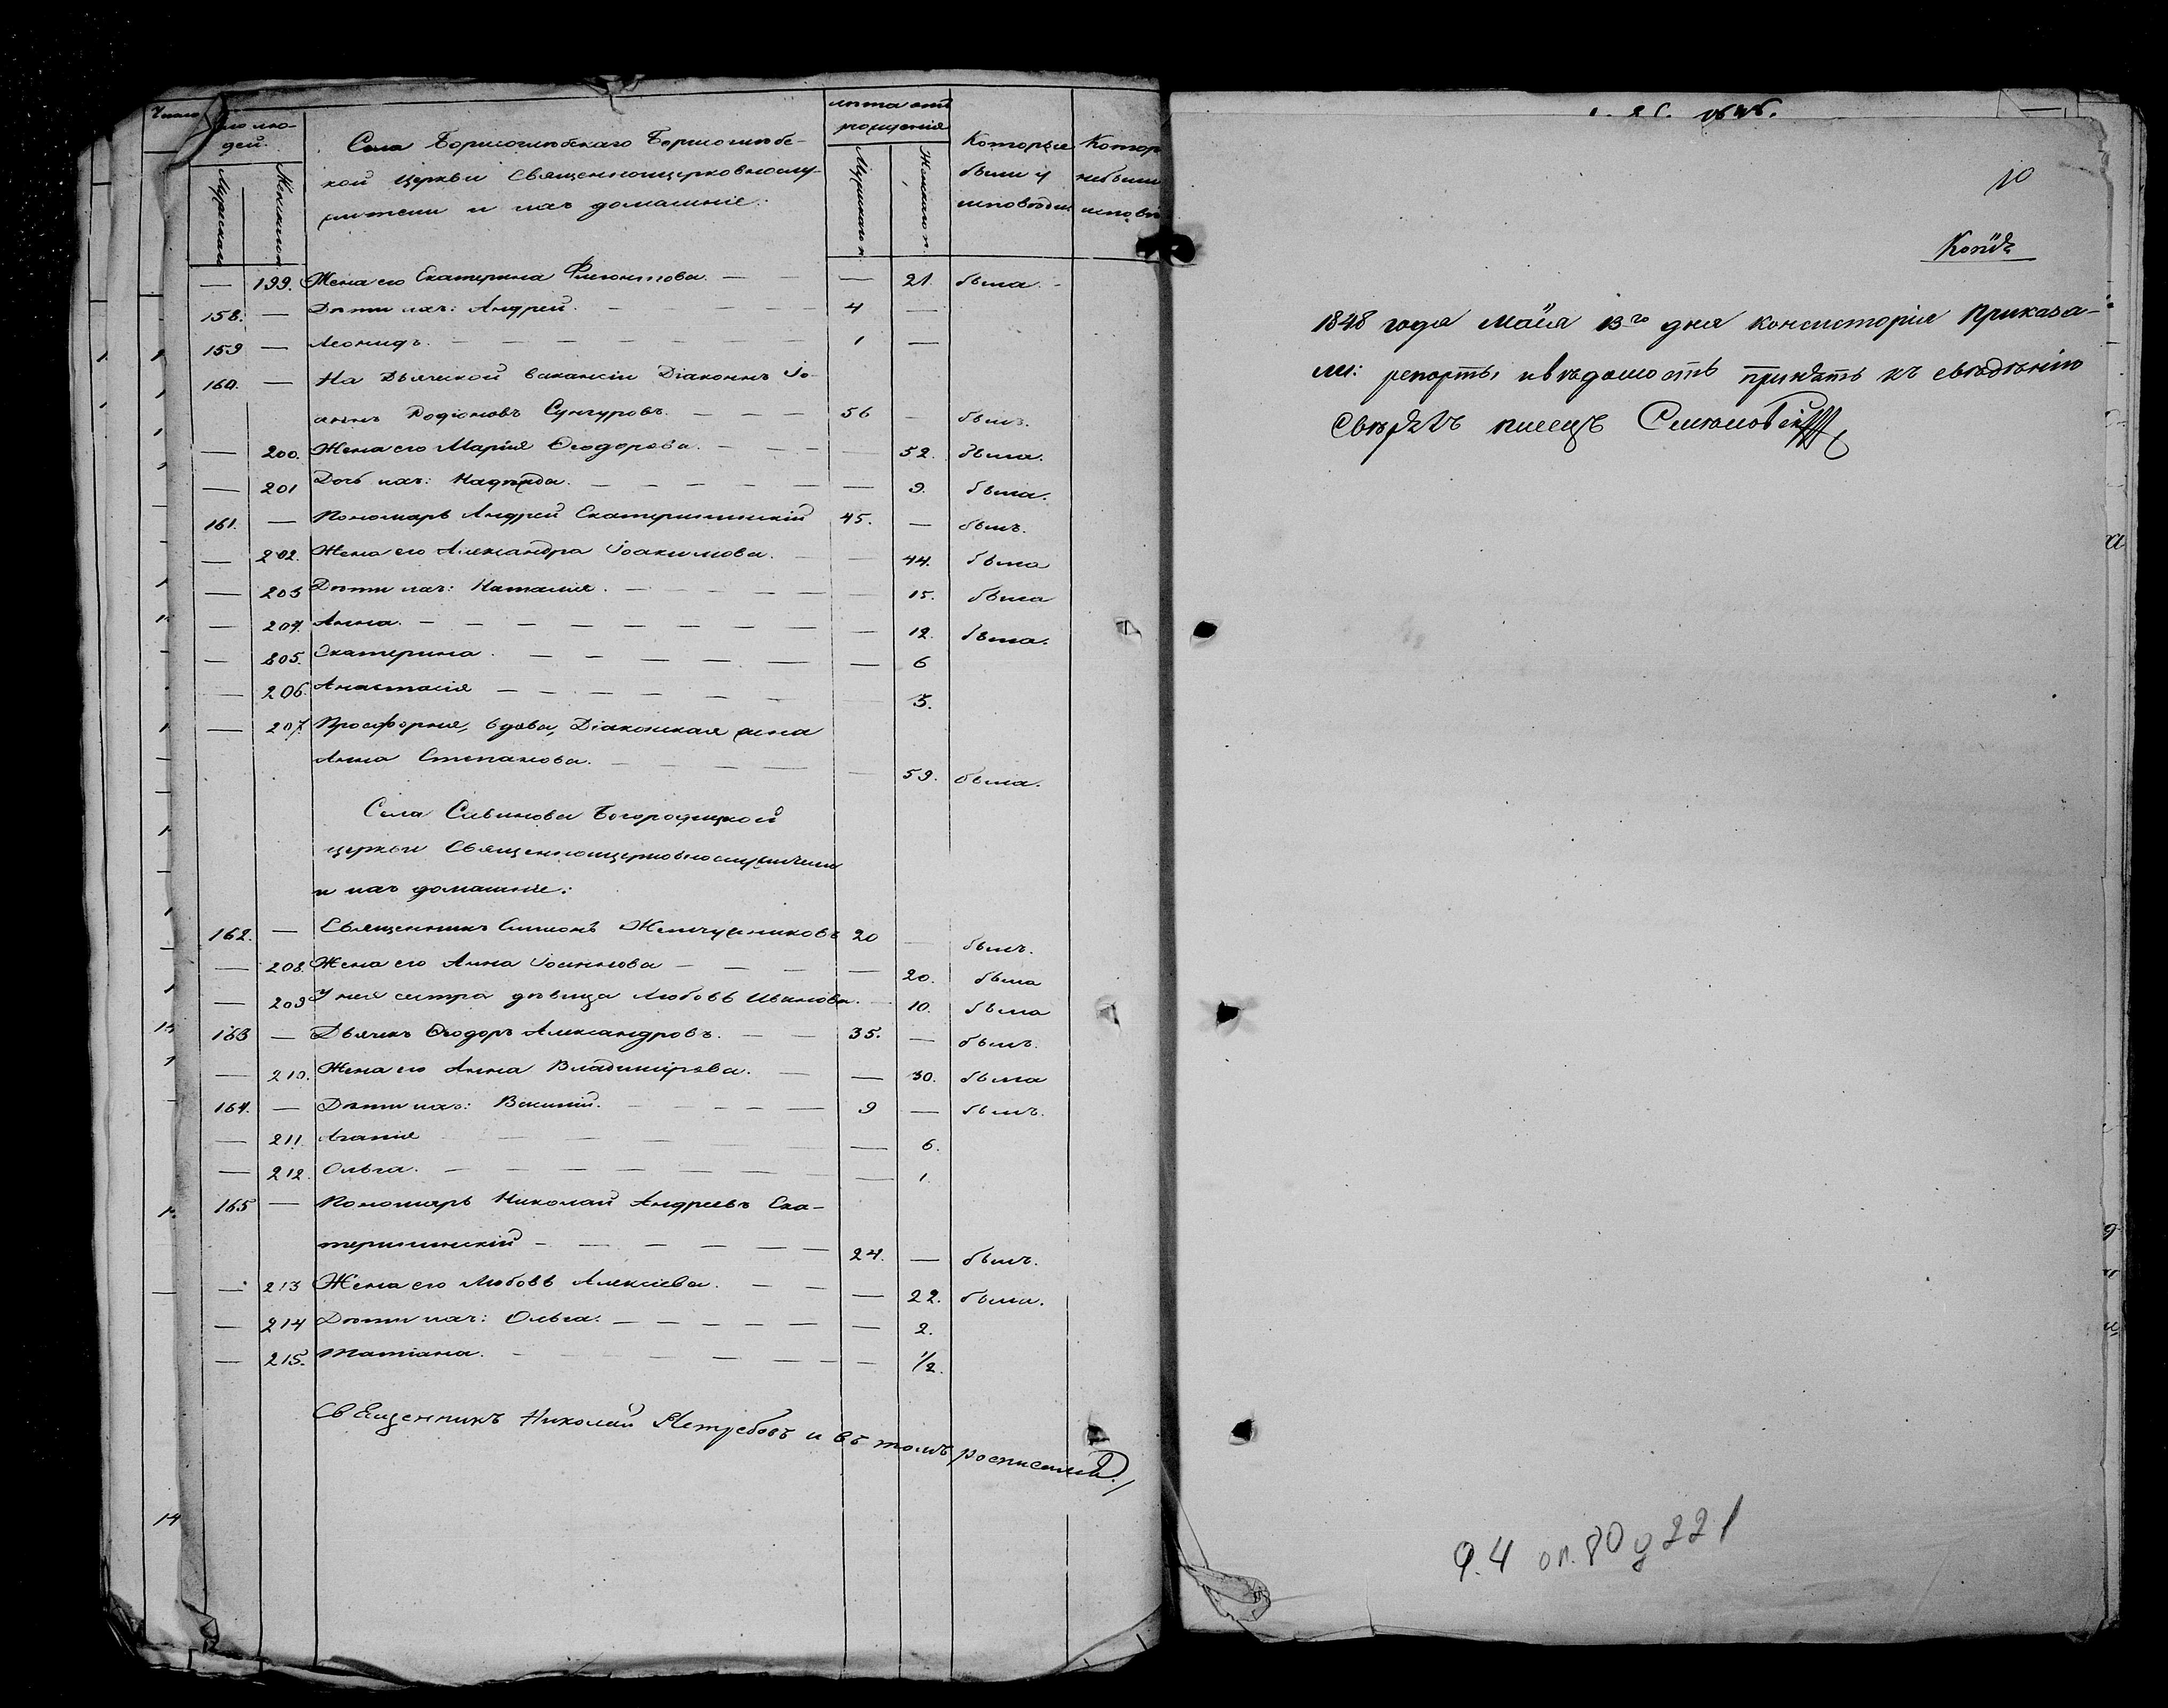 Число лю-
дей.
Мужескаго
Женскаго
Села Борисоглѣбскаго Борисоглѣбс-
кой церкви Священноцерковнослу-
жители и ихъ домашніе:
лѣта отъ
рожденія
Мужескаго п.
Женскаго п.
Которые
были у
исповѣди
Котор
небыли
исповѣ
— 199. Жена его Екатерина — 21. была.
158. — Дѣти ихъ: Андрей. 4 —
159 — Леонидъ. 1 —
160. — На Дьяческой вакансіи Діаконъ Іо-
аннъ Родіоновъ Сунгуровъ. 56 — былъ.
— 200. Жена его Марія Ѳеодорова. — 52. была.
— 201 Дочь ихъ: Надежда. — 9. была.
161. — Пономарь Андрей Екатерининскій 45. — былъ.
— 202. Жена его Александра Іоакимова. — 44. была
— 203 Дѣти ихъ: Наталія. — 15. была
— 204. Анна. — 12. была.
— 205. Екатерина. — 6
— 206. Анастасія 3.
— 207. Просфорня, вдова, Діаконская жена
Анна Степанова. — 59. была.
Села Савинова Богородицкой
церкви Священноцерковнослужители
и ихъ домашніе:
162. — Священникъ Симеонъ Жемчужниковъ 20 — былъ.
— 208. Жена его Анна Іоаннова — 20. была
— 209 У нея сестра дѣвица Любовь Иванова. 10. была
163 — Дьячекъ Ѳеодоръ Александровъ. 35. — былъ.
— 210. Жена его Анна Владимірова. — 30. была
164. — Дѣти ихъ: Василій. 9 — былъ.
— 211. Агапія — 6.
— 212. Ольга. — 1.
165 — Пономарь Николай Андреевъ Ека-
терининскій 24. — былъ.
— 213 Жена его Любовь Алексіева. — 22. была.
— 214 Дѣти ихъ: Ольга. — 2.
— 215. Татіана. — 1/2.
Священникъ Николай Нетребовъ и въ томъ росписался.
10
Копія
1848 года Маія 13го дня Консисторія Приказа-
ли: репортъ и вѣдомость принять къ свѣдѣнію
Свѣрялъ писецъ
Ф.4 оп.80 д 221